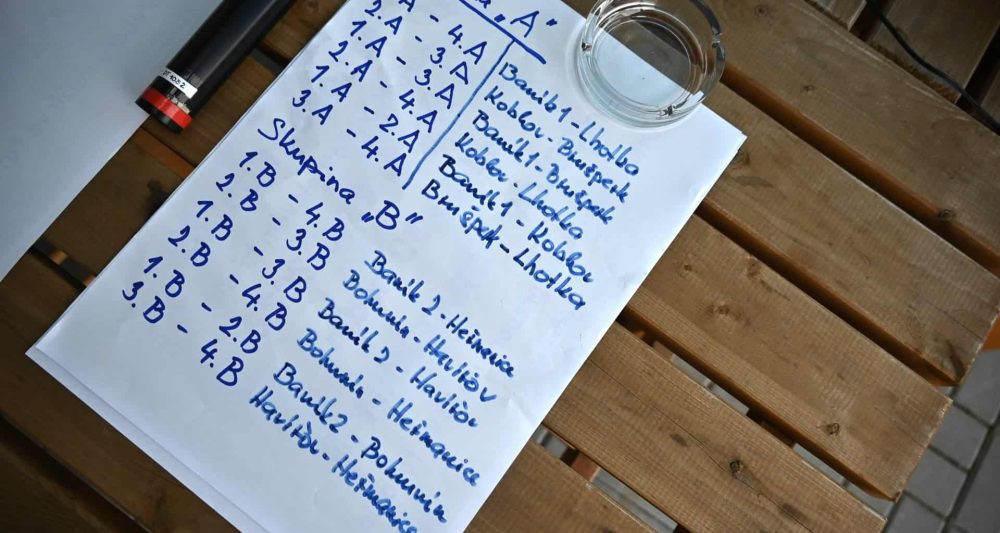 „A“
A - 4.A Baník 1 - Lhotka
2.A - 3.A Koblov - Brušperk
1.A - 3.A Baník 1 - Brušperk
2.A - 4.A Koblov - Lhotka
1.A - 2.A Baník 1 - Koblov
3.A - 4.A Brušperk - Lhotka
Skupina „B“
1.B - 4.B Baník 2 - Heřmanice
2.B - 3.B Bohumín - Havířov
1.B - 3.B Baník 2 - Havířov
2.B - 4.B Bohumín - Heřmanice
1.B - 2.B Baník 2 - Bohumín
3.B - 4.B Havířov - Heřmanice